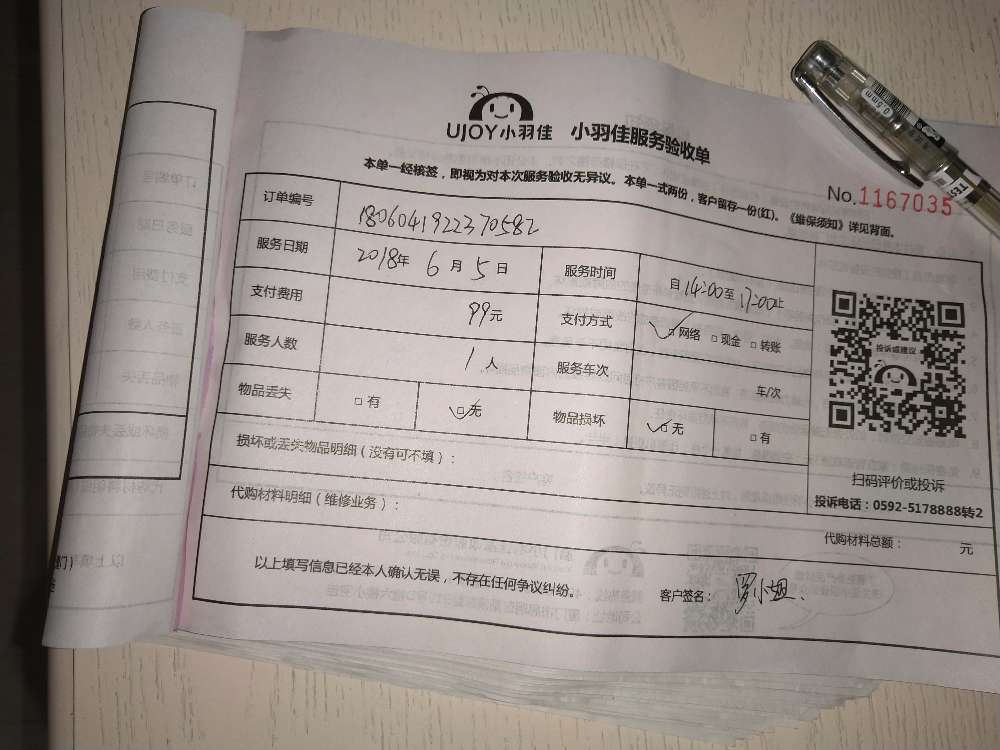 UJOY小羽佳 小羽佳服务验收单
本单一经核签，即视为对本次服务验收无异议。本单一式两份，客户留存一份(红)。《维保须知》详见背面。
No.1167035
订单编号 1806041922370582
服务日期 2018年 6月 5日 服务时间 自14:00至17:00止
支付费用 99元 支付方式 ☑网络 □现金 □转账
服务人数 1人 服务车次 车/次
物品丢失 □有 ☑无 物品损坏 ☑无 □有
投诉或建议
扫码评价或投诉
投诉电话：0592-5178888转2
损坏或丢失物品明细（没有可不填）：
代购材料明细（维修业务）：
代购材料总额： 元
以上填写信息已经本人确认无误，不存在任何争议纠纷。
客户签名： 罗小姐.
0.5mm